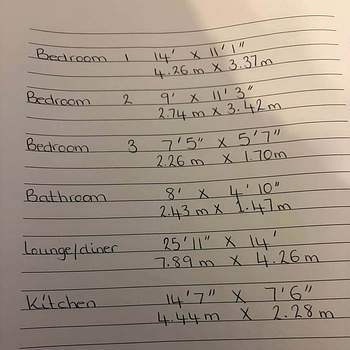 Bedroom 1 14' x 11'1"
4.26m x 3.37m
Bedroom 2 9' x 11'3"
2.74m x 3.42m
Bedroom 3 7'5" x 5'7"
2.26m x 1.70m
Bathroom 8' x 4'10"
2.43m x 1.47m
Lounge/diner 25'11" x 14'
7.89m x 4.26m
Kitchen 14'7" x 7'6"
4.44m x 2.28m